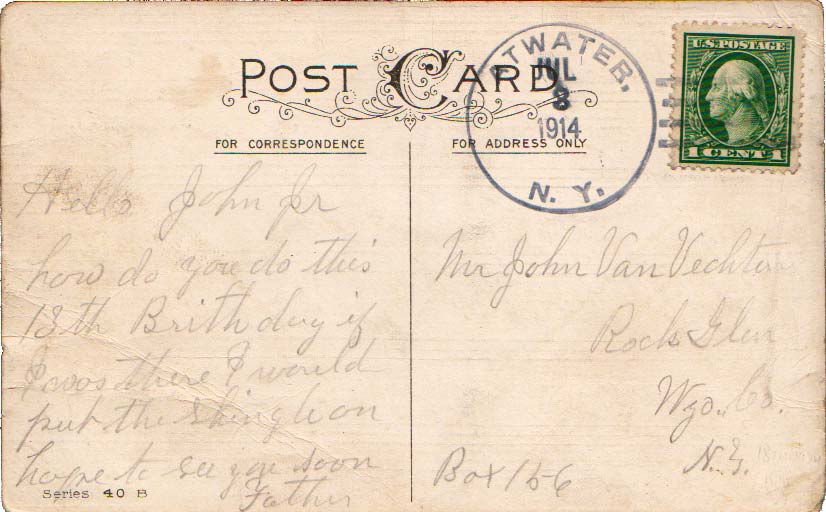 POST CARD
FOR CORRESPONDENCE
FOR ADDRESS ONLY
ATWATER,
JUL
8
1914
N. Y.
U.S. POSTAGE
1 CENT 1
Hello John Jr
how do you do this
13th Brithday if
I was there I would
put the Shingle on
hope to see you soon
Father
Mr John Van Vechten
Rock Glen
Wyo. Co.
N.Y.
Box 156
Series 40 B